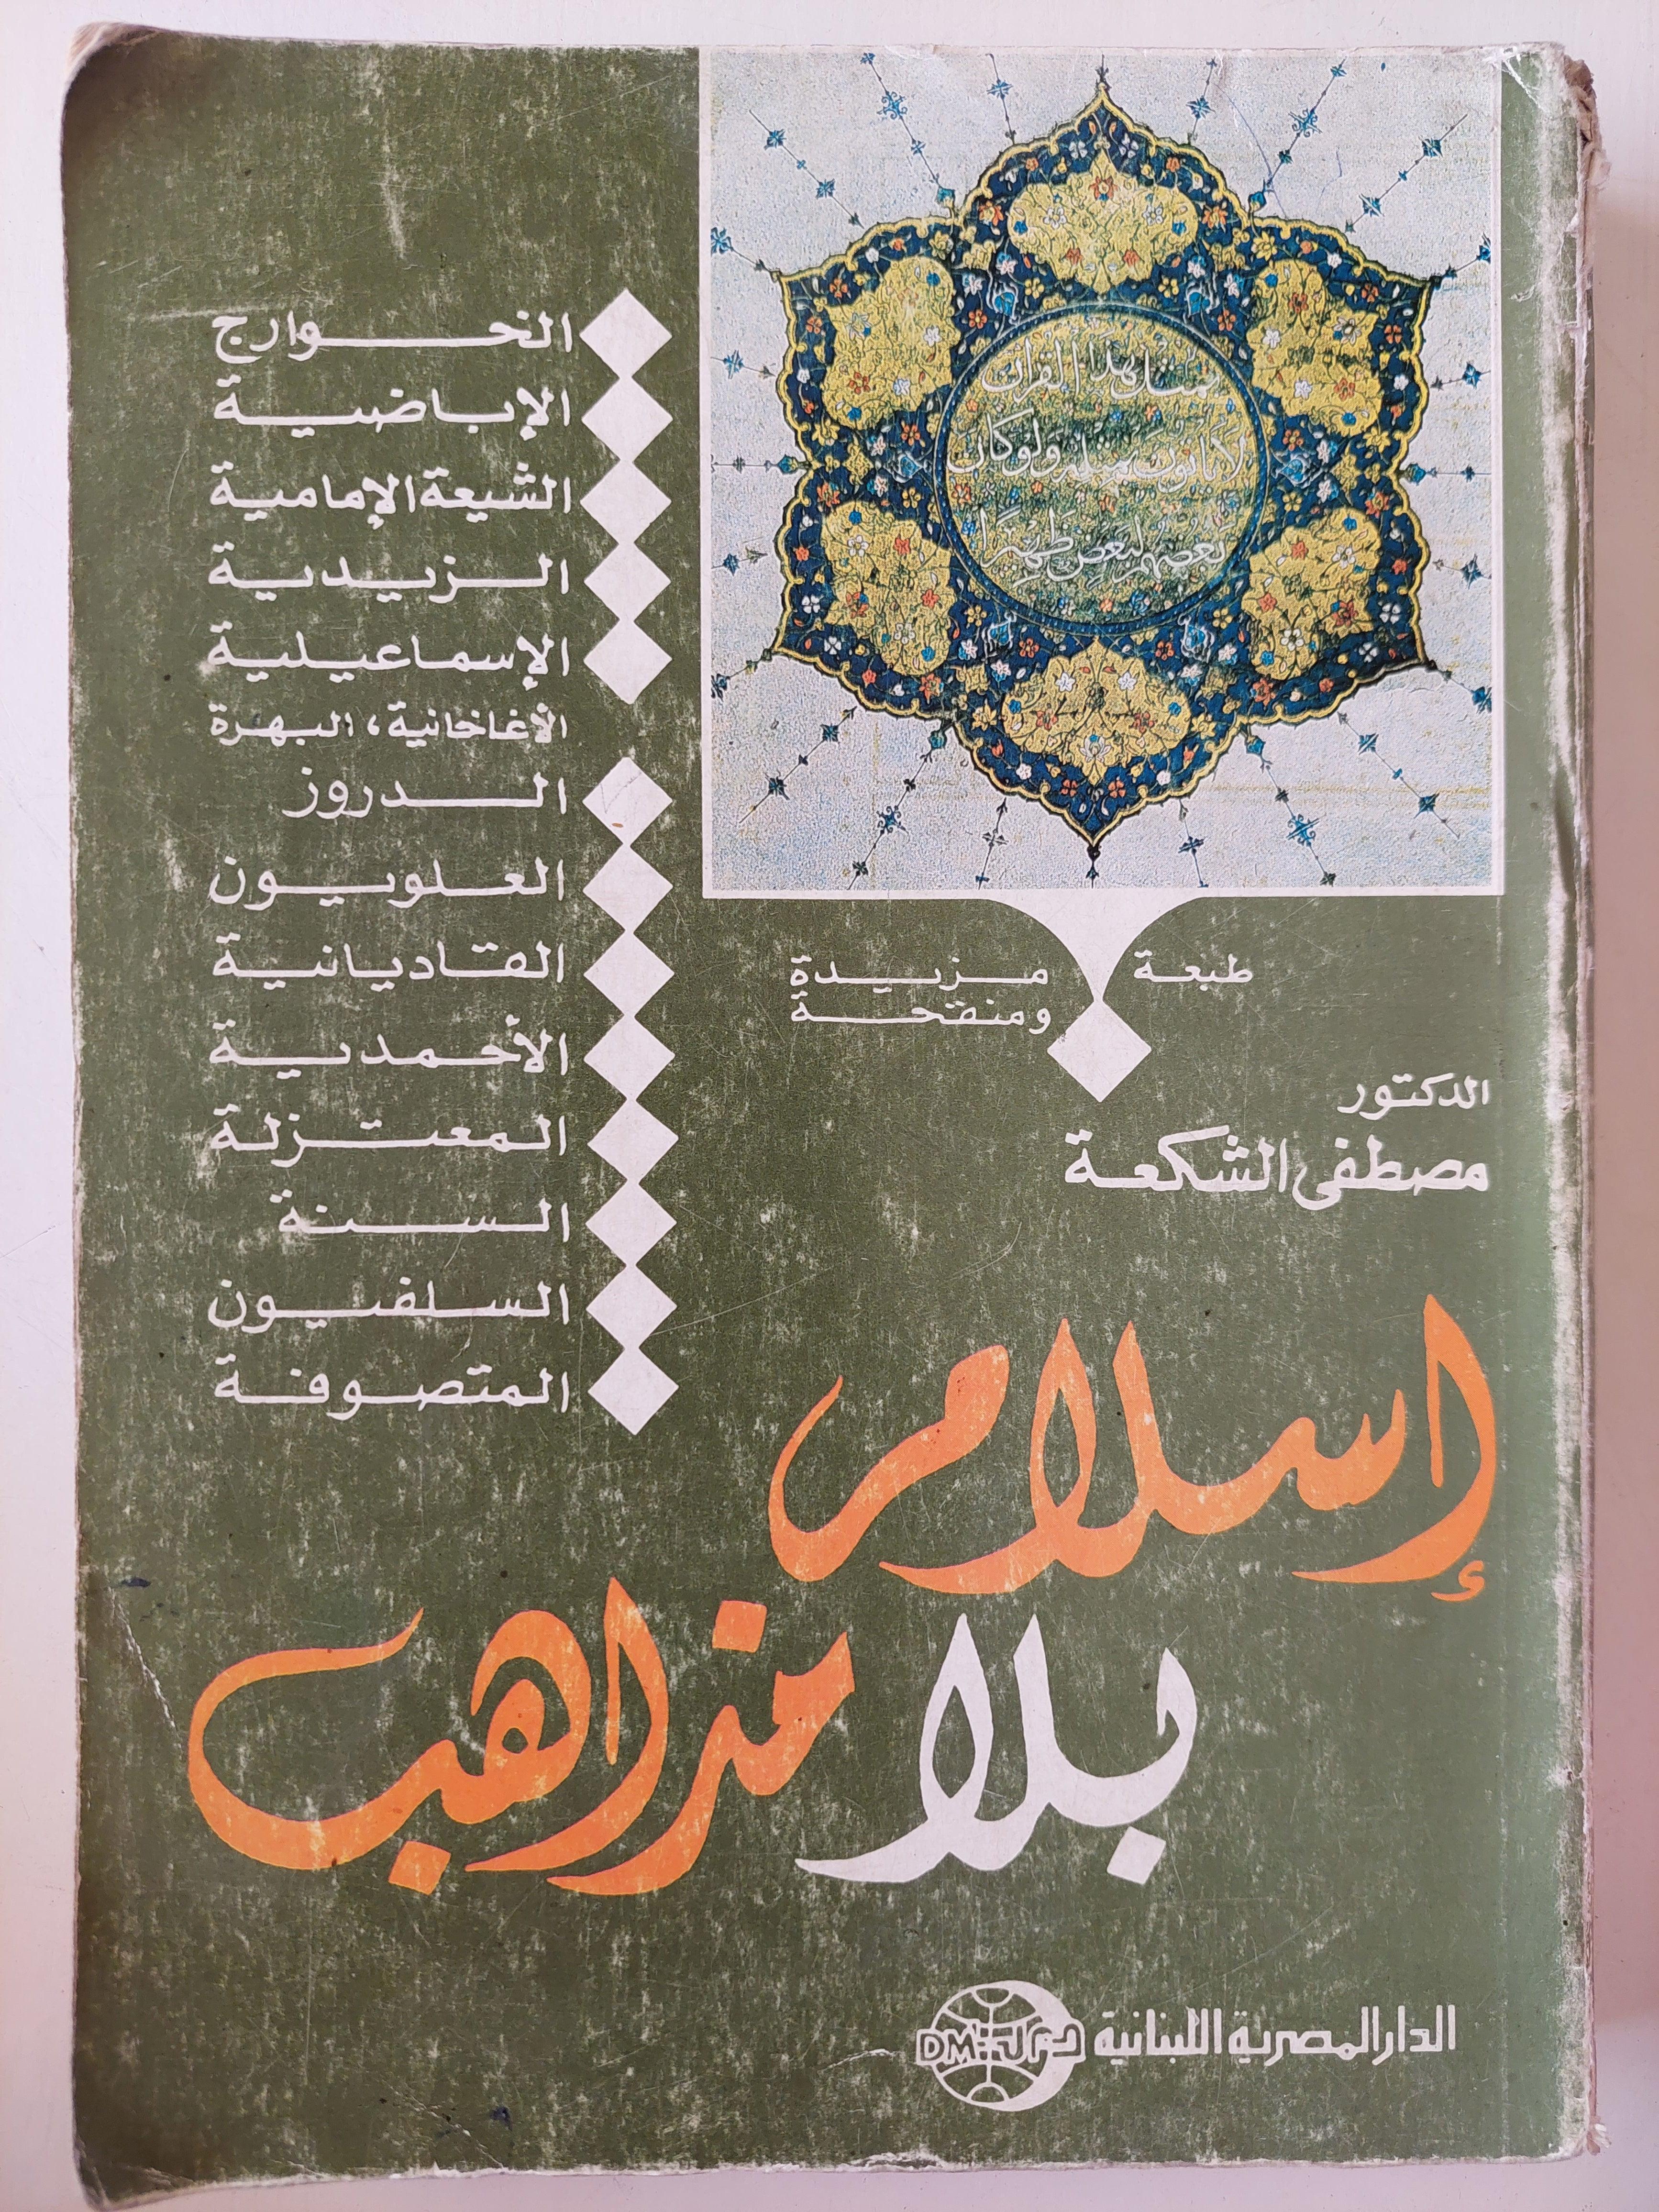 بمثل هذا القران
لا يأتون بمثله ولو كان
بعضهم لبعض ظهيرا
طبعة مزيدة
ومنقحة
الدكتور
مصطفى الشكعة
الخوارج
الإباضية
الشيعة الإمامية
الزيدية
الإسماعيلية
الأغاخانية، البهرة
الدروز
العلويون
القاديانية
الأحمدية
المعتزلة
السنة
السلفيون
المتصوفة
إسلام
بلا مذاهب
الدار المصرية اللبنانية